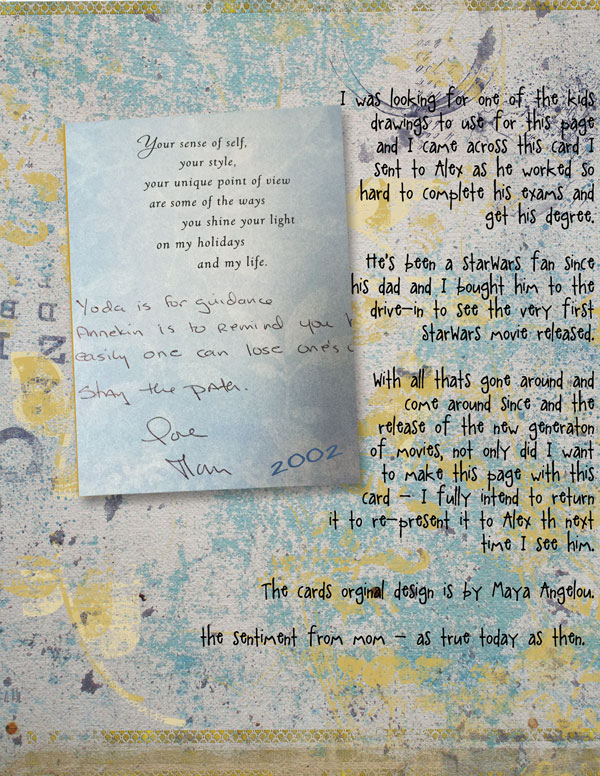 Your sense of self,
your style,
your unique point of view
are some of the ways
you shine your light
on my holidays
and my life.
Yoda is for guidance
Annekin is to remind you h
easily one can lose one's
Stay the path.
Love
Mom
2002
I was looking for one of the kids
drawings to use for this page
and I came across this card I
sent to Alex as he worked so
hard to complete his exams and
get his degree.
He's been a StarWars fan since
his dad and I bought him to the
drive-in to see the very first
StarWars movie released.
With all thats gone around and
come around since and the
release of the new generaton
of movies, not only did I want
to make this page with this
card - I fully intend to return
it to re-present it to Alex th next
time I see him.
The cards orginal design is by Maya Angelou.
the sentiment from mom - as true today as then.